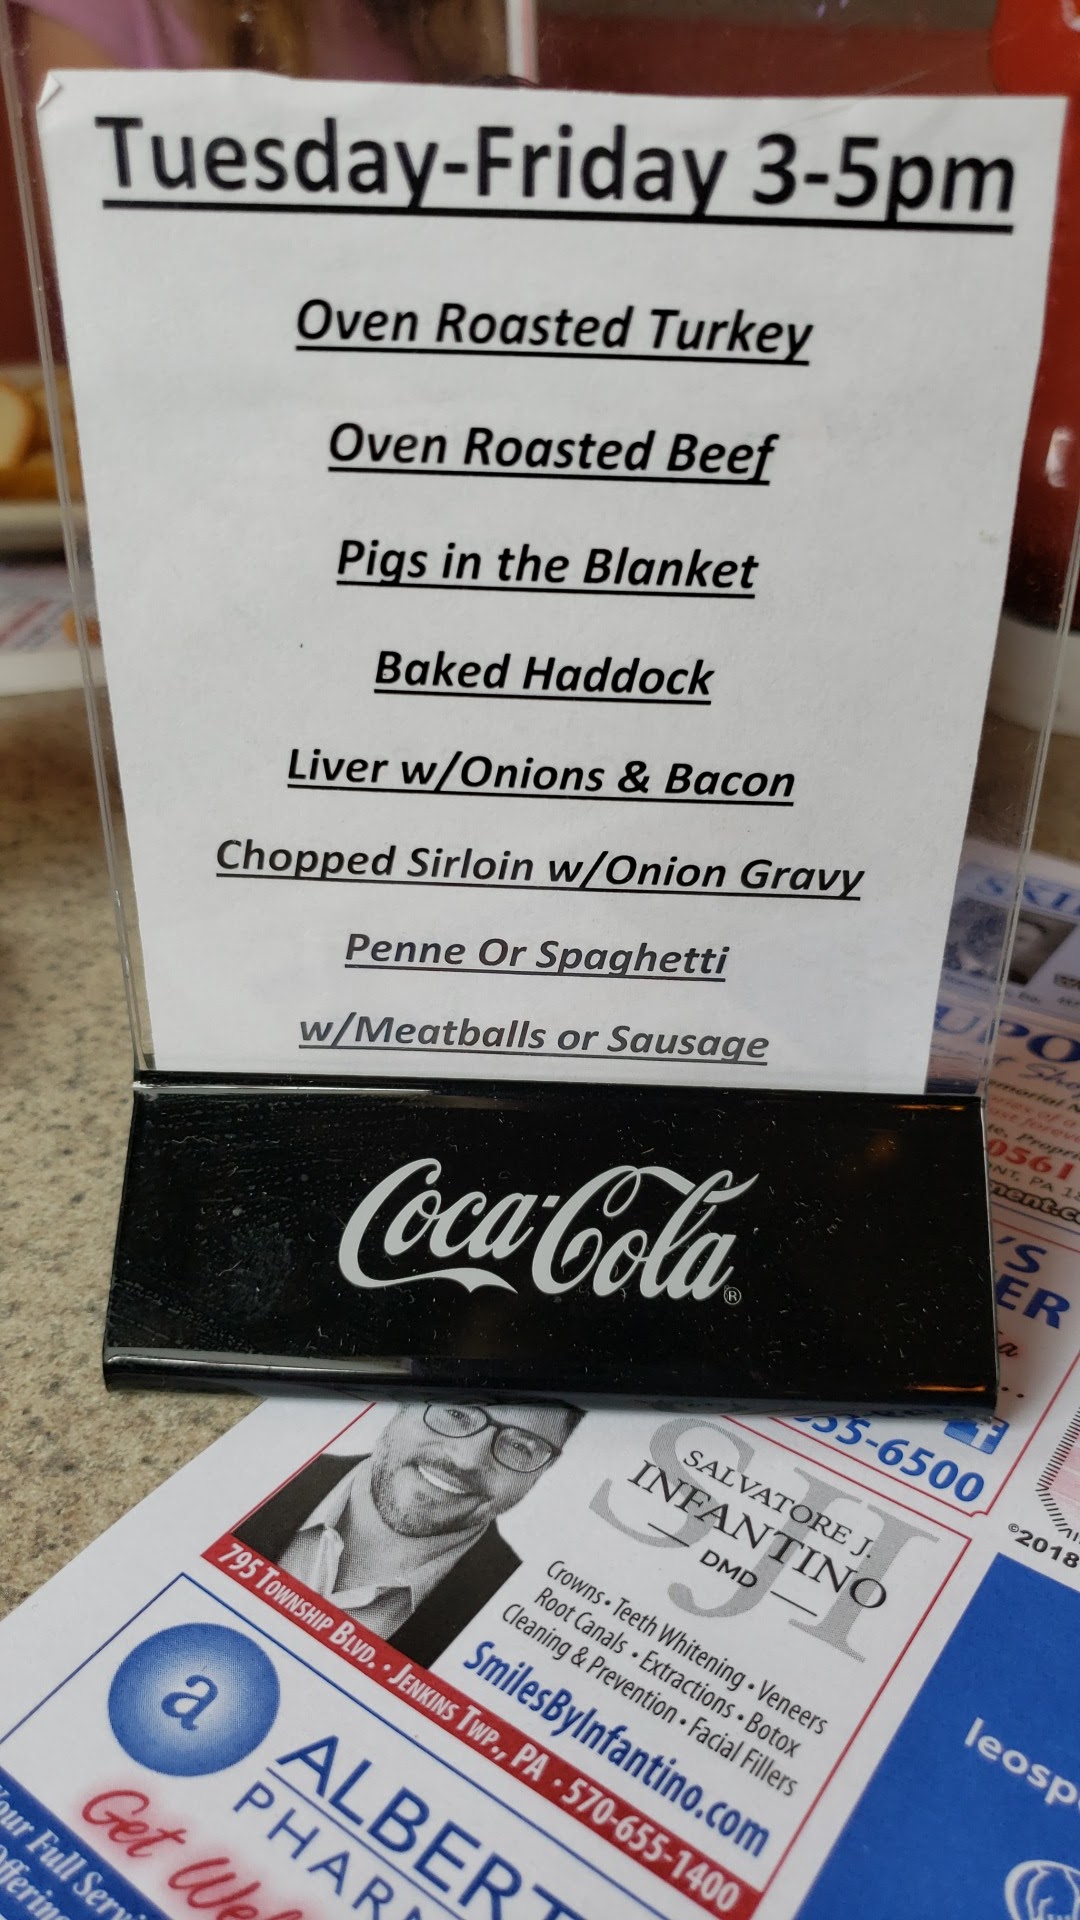 Tuesday-Friday 3-5pm
Oven Roasted Turkey
Oven Roasted Beef
Pigs in the Blanket
Baked Haddock
Liver w/Onions & Bacon
Chopped Sirloin w/Onion Gravy
Penne Or Spaghetti
w/Meatballs or Sausage
Coca-Cola®
0561
'S
ER
655-6500
f
©2018
SJI
SALVATORE J.
INFANTINO
DMD
Crowns • Teeth Whitening • Veneers
Root Canals • Extractions • Botox
Cleaning & Prevention • Facial Fillers
SmilesByInfantino.com
795 Township Blvd. • Jenkins Twp., PA • 570-655-1400
a
ALBERT
PHAR
Get Wel
Your Full Servi
Offering
leosp